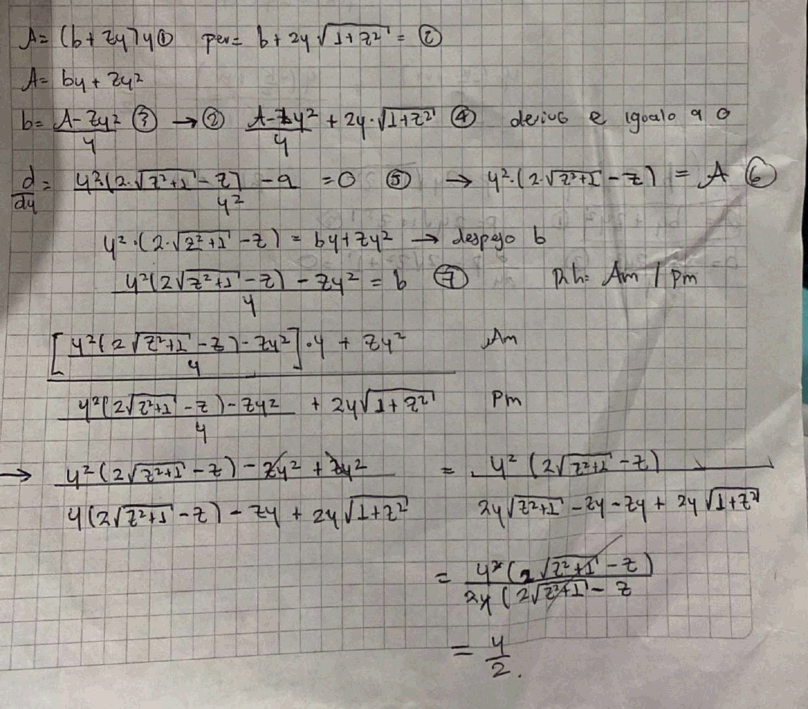 A = (b + zy)y ① per = b + 2y√(1+z²) = ②
A = by + zy²
b = (A - zy²)/y ③ → ② (A - zy²)/y + 2y·√(1+z²) ④ derivo e igualo a 0
d/dy = (y²·(2·√(z²+1) - z) - a)/y² = 0 ⑤ → y²·(2·√(z²+1) - z) = A ⑥
y²·(2·√(z²+1) - z) = by + zy² → despejo b
(y²(2√(z²+1) - z) - zy²)/y = b ⑦ Rh = Am / Pm
[(y²(2√(z²+1) - z) - zy²)/y]·y + zy² Am
(y²(2√(z²+1) - z) - zy²)/y + 2y√(1+z²) Pm
→ (y²(2√(z²+1) - z) - zy² + zy²)/(y(2√(z²+1) - z) - zy + 2y√(1+z²)) = (y²(2√(z²+1) - z))/(2y√(z²+1) - zy - zy + 2y√(1+z²))
= (y²(2√(z²+1) - z))/(2y(2√(z²+1) - z
= y/2.